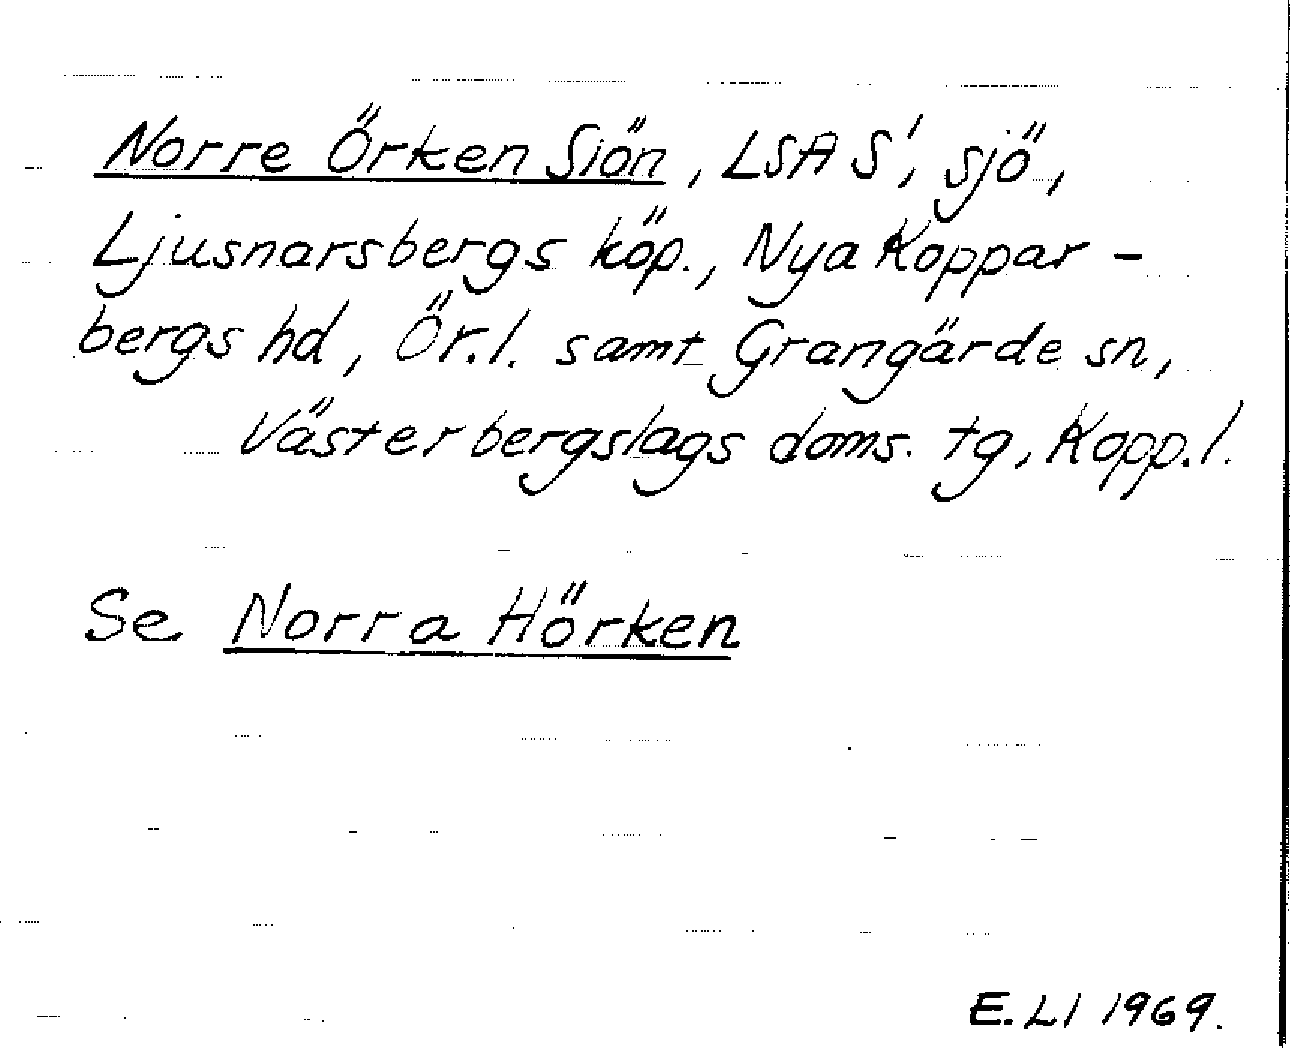 Norre Örken Siön, LSA S1, sjö,
Ljusnarsbergs köp., Nya Koppar-
bergs hd, Ör.l. samt Grangärde sn,
Västerbergslags doms. tg, Kopp.l.
Se Norra Hörken
E.LI 1969.